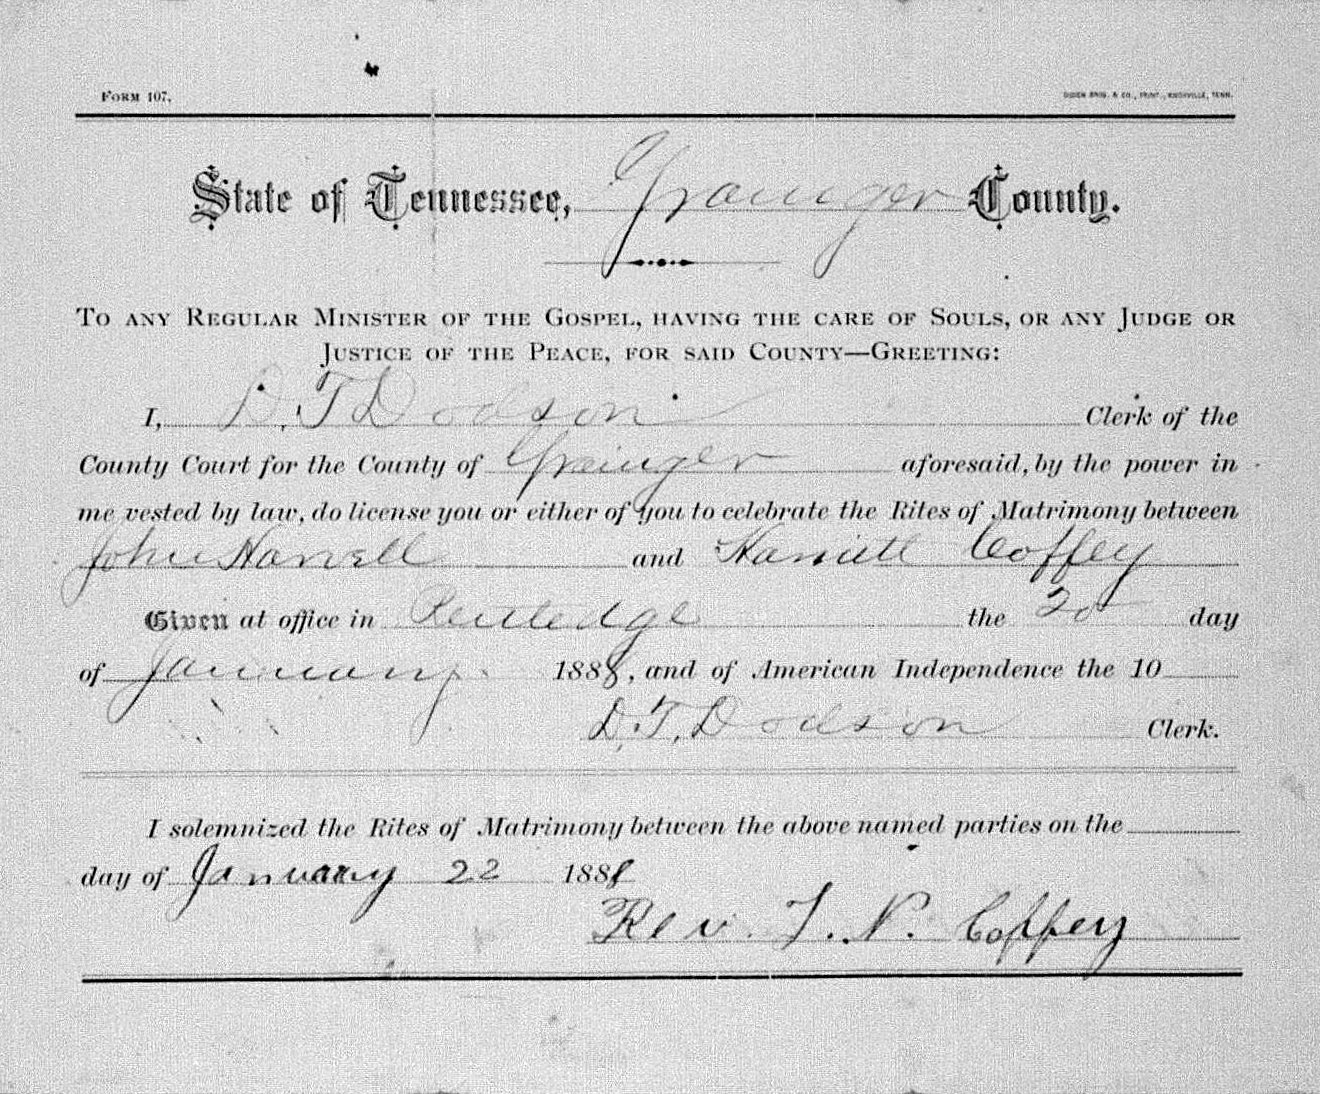 FORM 107.
OGDEN BROS. & CO., PRINT., KNOXVILLE, TENN.
State of Tennessee, Grainger County.
TO ANY REGULAR MINISTER OF THE GOSPEL, HAVING THE CARE OF SOULS, OR ANY JUDGE OR
JUSTICE OF THE PEACE, FOR SAID COUNTY—GREETING:
I, D. T. Dodson Clerk of the
County Court for the County of Grainger aforesaid, by the power in
me vested by law, do license you or either of you to celebrate the Rites of Matrimony between
John Harrell and Harriett Coffey
Given at office in Rutledge the 20 day
of January 1888, and of American Independence the 10
D. T. Dodson Clerk.
I solemnized the Rites of Matrimony between the above named parties on the
day of January 22 1888
Rev. T. N. Coffey